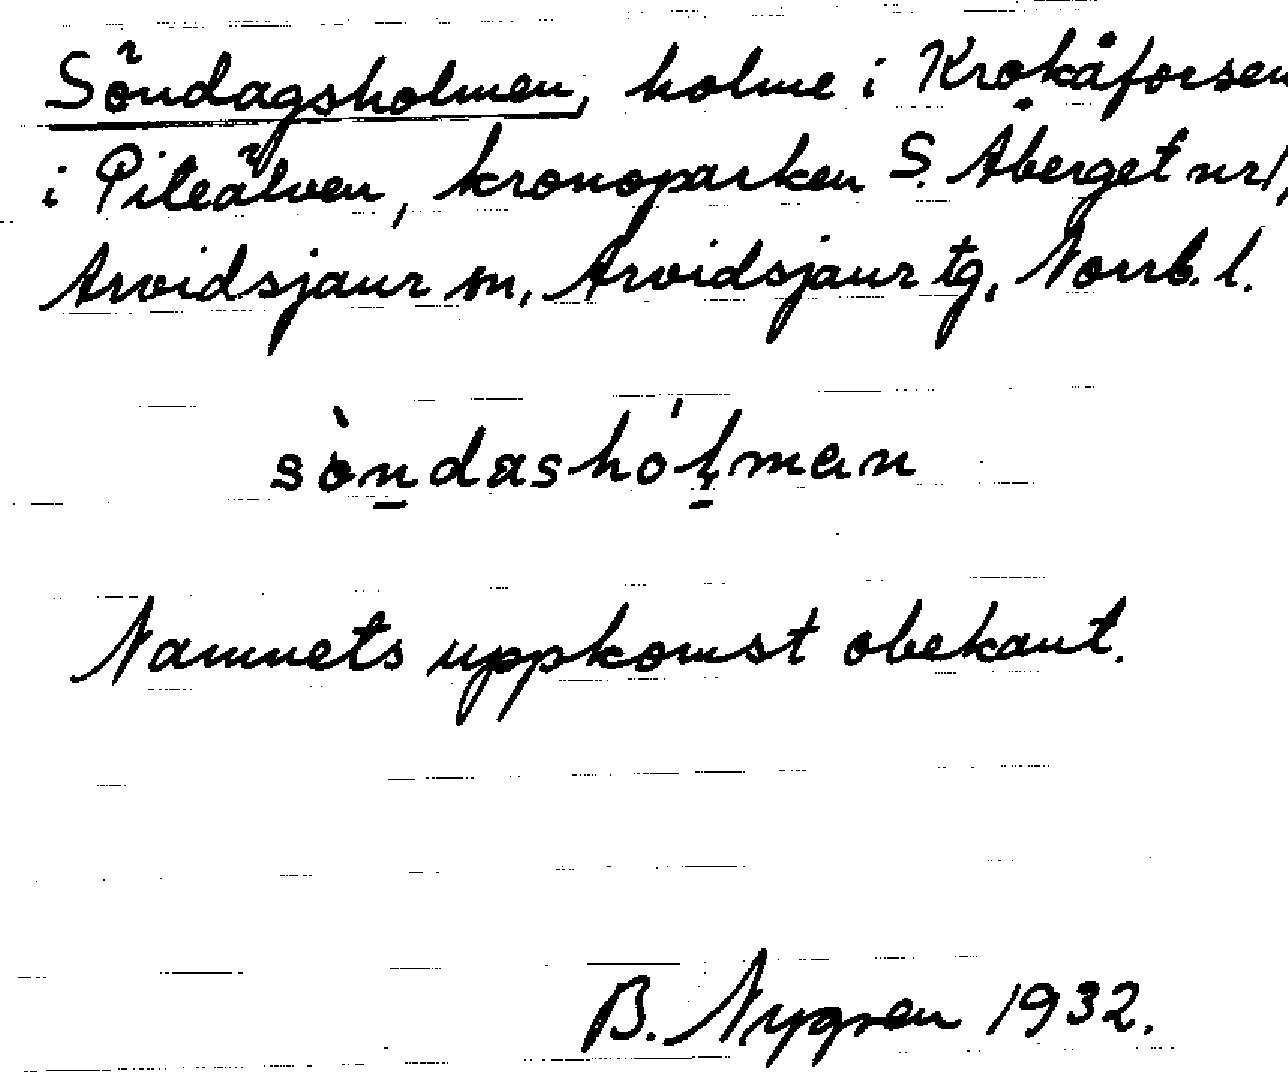 Söndagsholmen, holme i Krokåforsen
i Piteälven, kronoparken S. Åberget nr 1,
Arvidsjaur sn, Arvidsjaur tg, Norrb. l.
sòn̲dashó'l̲man
Namnets uppkomst obekant.
B. Nygren 1932.